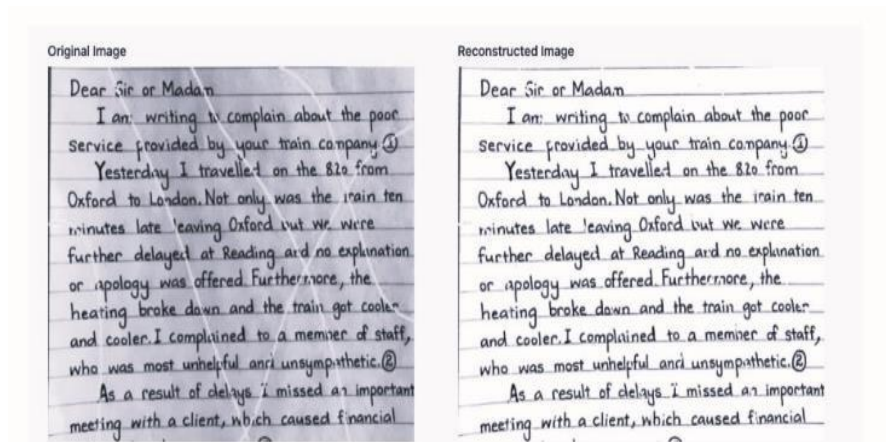 Original Image
Dear Sir or Madam
I am writing to complain about the poor
service provided by your train company ①
Yesterday I travelled on the 820 from
Oxford to London. Not only was the train ten
minutes late leaving Oxford but we were
further delayed at Reading and no explanation
or apology was offered. Furthermore, the
heating broke down and the train got cooler
and cooler. I complained to a member of staff,
who was most unhelpful and unsympathetic. ②
As a result of delays I missed an important
meeting with a client, which caused financial
Reconstructed Image
Dear Sir or Madam
I am writing to complain about the poor
service provided by your train company ①
Yesterday I travelled on the 820 from
Oxford to London. Not only was the train ten
minutes late leaving Oxford but we were
further delayed at Reading and no explanation
or apology was offered. Furthermore, the
heating broke down and the train got cooler
and cooler. I complained to a member of staff,
who was most unhelpful and unsympathetic. ②
As a result of delays I missed an important
meeting with a client, which caused financial